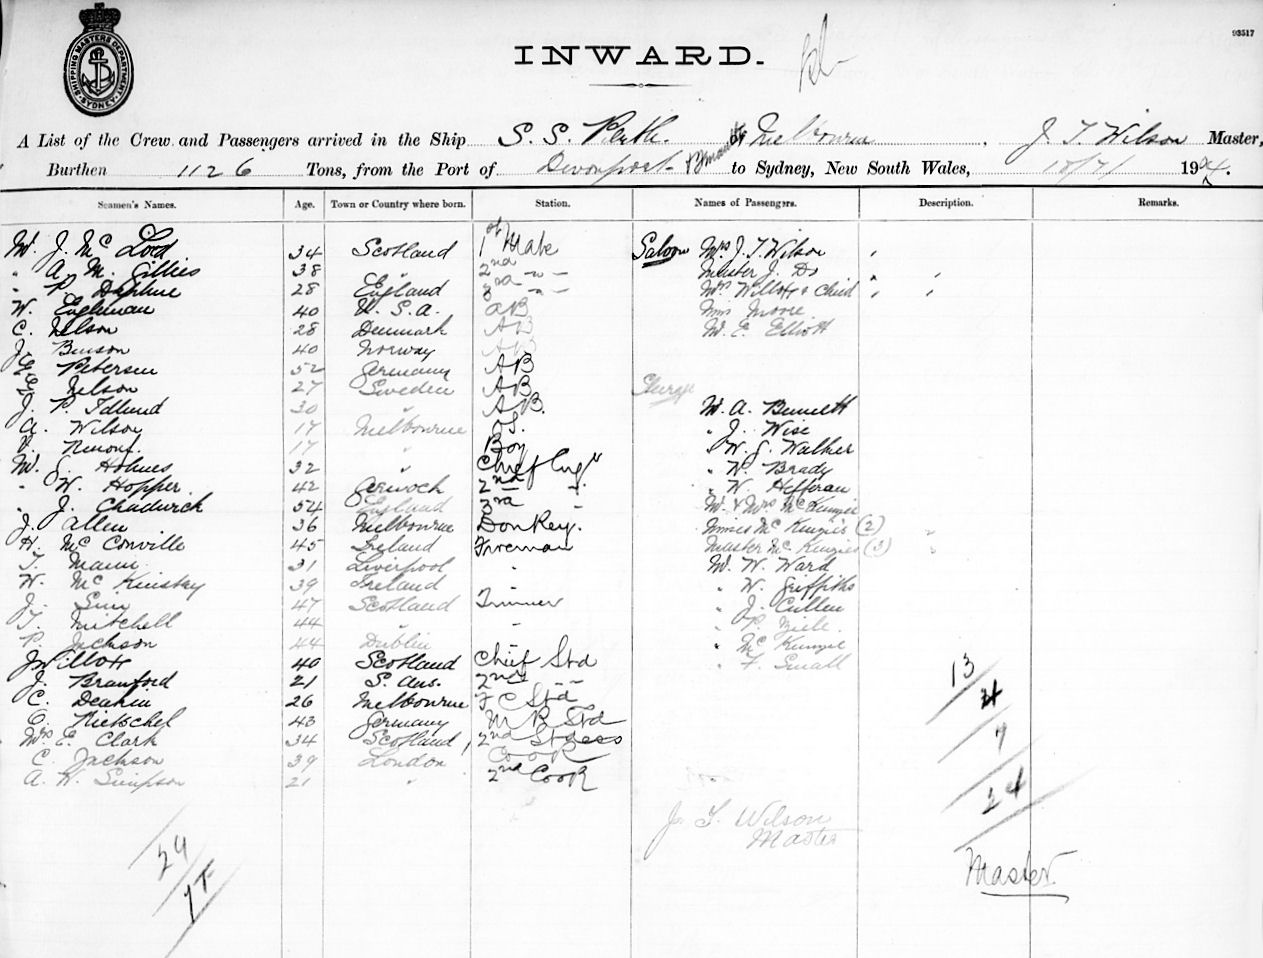 SHIPPING MASTERS DEPARTMENT SYDNEY
INWARD.
93517
A List of the Crew and Passengers arrived in the Ship S. S. Perth. of Melbourne, J. T. Wilson Master,
Burthen 1126 Tons, from the Port of Devonport to Sydney, New South Wales, 18/7/ 1904.
Seamen's Names. Age. Town or Country where born. Station. Names of Passengers. Description. Remarks.
M. J. Mc 34 Scotland 1st Mate Saloon Mrs J. T. Wilson
" A. M. Gillies 38 " 2nd " Master J. Do
" P. Daphne 28 England 3rd " Mrs Willott & Child
W. 40 U. S. A. AB Miss Moore
C. Nelson 28 Denmark AB M. E. Elliott
J. Benson 40 Norway AB
E. Petersen 52 Germany AB
E. Nelson 27 Sweden AB Steerage
J. P. Edlund 30 " AB. M. A. Bennett
A. Wilson 17 Melbourne OS. " J. Wise
17 " Boy " W. J. Walker
M. J. Holmes 32 " Chief Eng " W. Brady
" W. Hopper 42 Greenock 2nd " " W. Heffernan
" J. Chadwick 54 England 3rd " M. & Mrs McKenzie
J. Allen 36 Melbourne Donkey. Misses McKenzie (2)
H. McConville 45 Ireland Fireman Master McKenzies (3)
T. Mann 31 Liverpool " M. W. Ward
W. McKinstay 39 Ireland " W. Griffiths
J. Sim 47 Scotland Trimmer " J. Cullen
T. Mitchell 44 " " " P.
P. Jackson 44 Dublin " McKenzie
J Willott 40 Scotland Chief Std " F. Small
J. Branford 21 S. Aus. 2nd "
C. Deakin 26 Melbourne F C Std
O. Nietschel 43 Germany M R Std
Mrs E. Clark 34 Scotland 2nd Stdess
C. Jackson 39 London Cook
A. W. Simpson 21 " 2nd Cook
13
4
7
24
J. T. Wilson
Master
Master
29